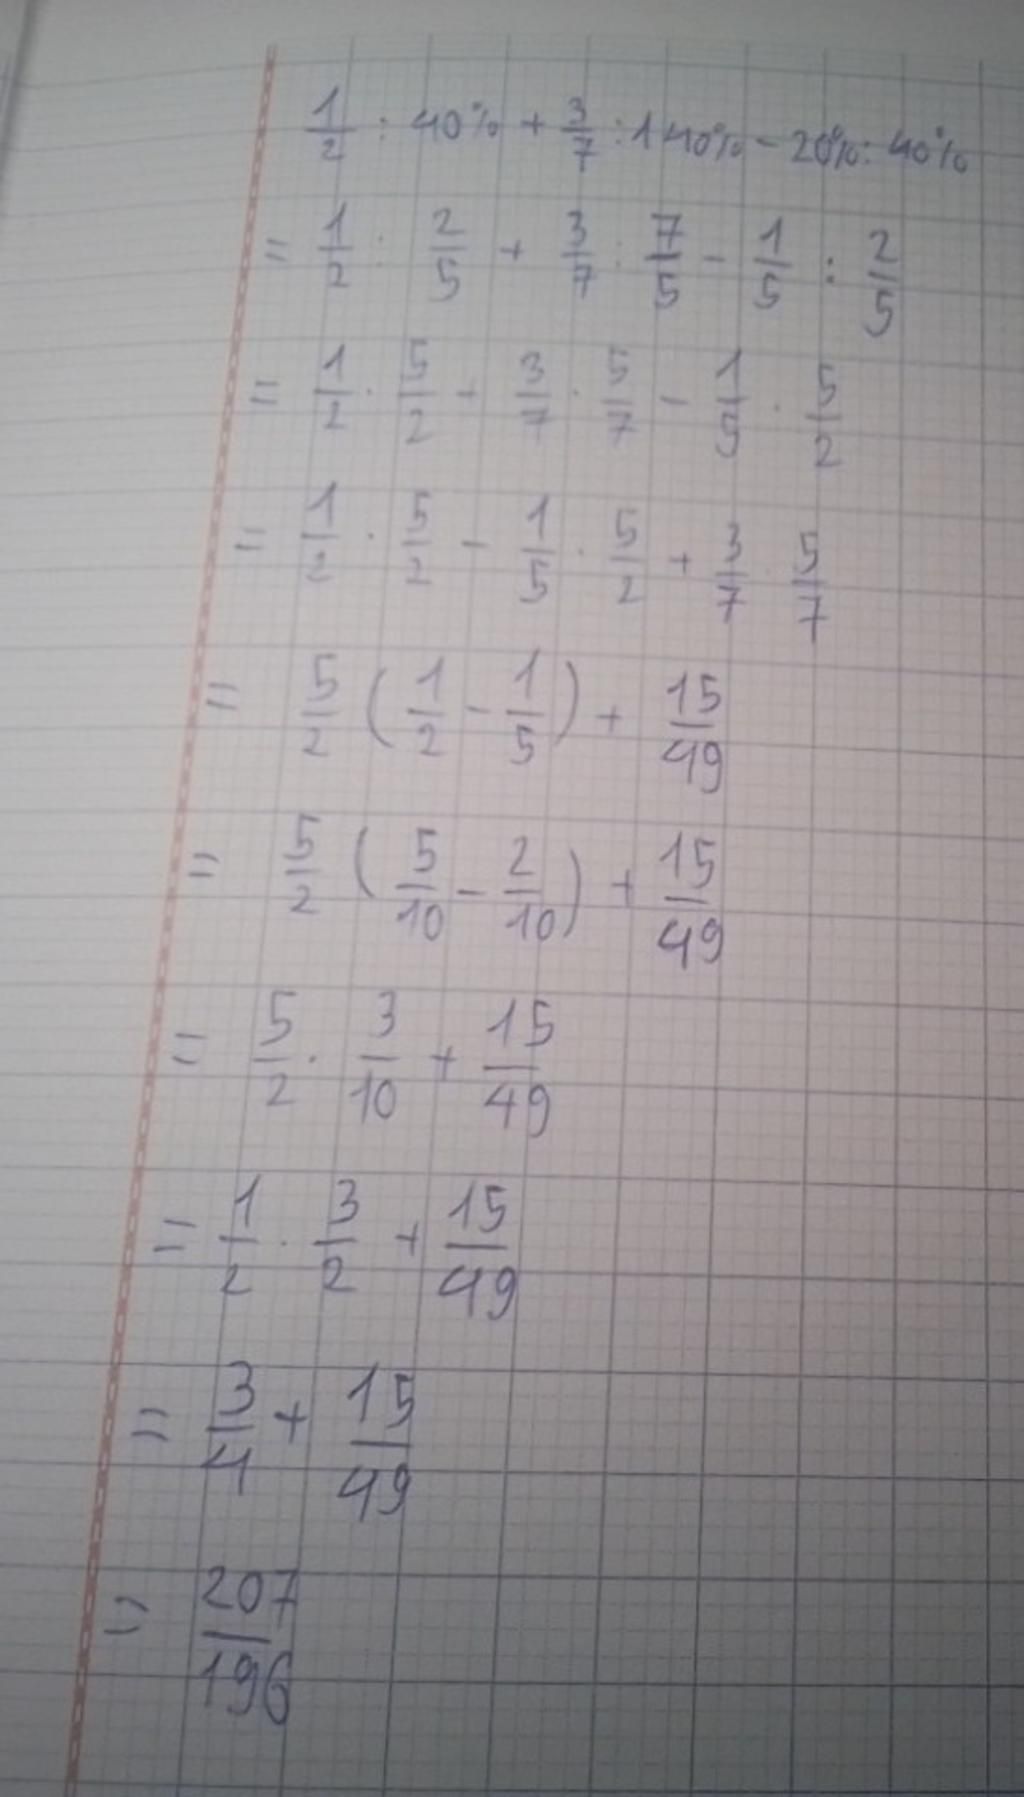 1/2 : 40% + 3/7 : 140% - 20% : 40%
= 1/2 : 2/5 + 3/7 : 7/5 - 1/5 : 2/5
= 1/2 . 5/2 - 3/7 . 5/7 - 1/5 . 5/2
= 1/2 . 5/2 - 1/5 . 5/2 + 3/7 . 5/7
= 5/2 (1/2 - 1/5) + 15/49
= 5/2 (5/10 - 2/10) + 15/49
= 5/2 . 3/10 + 15/49
= 1/2 . 3/2 + 15/49
= 3/4 + 15/49
= 207/196